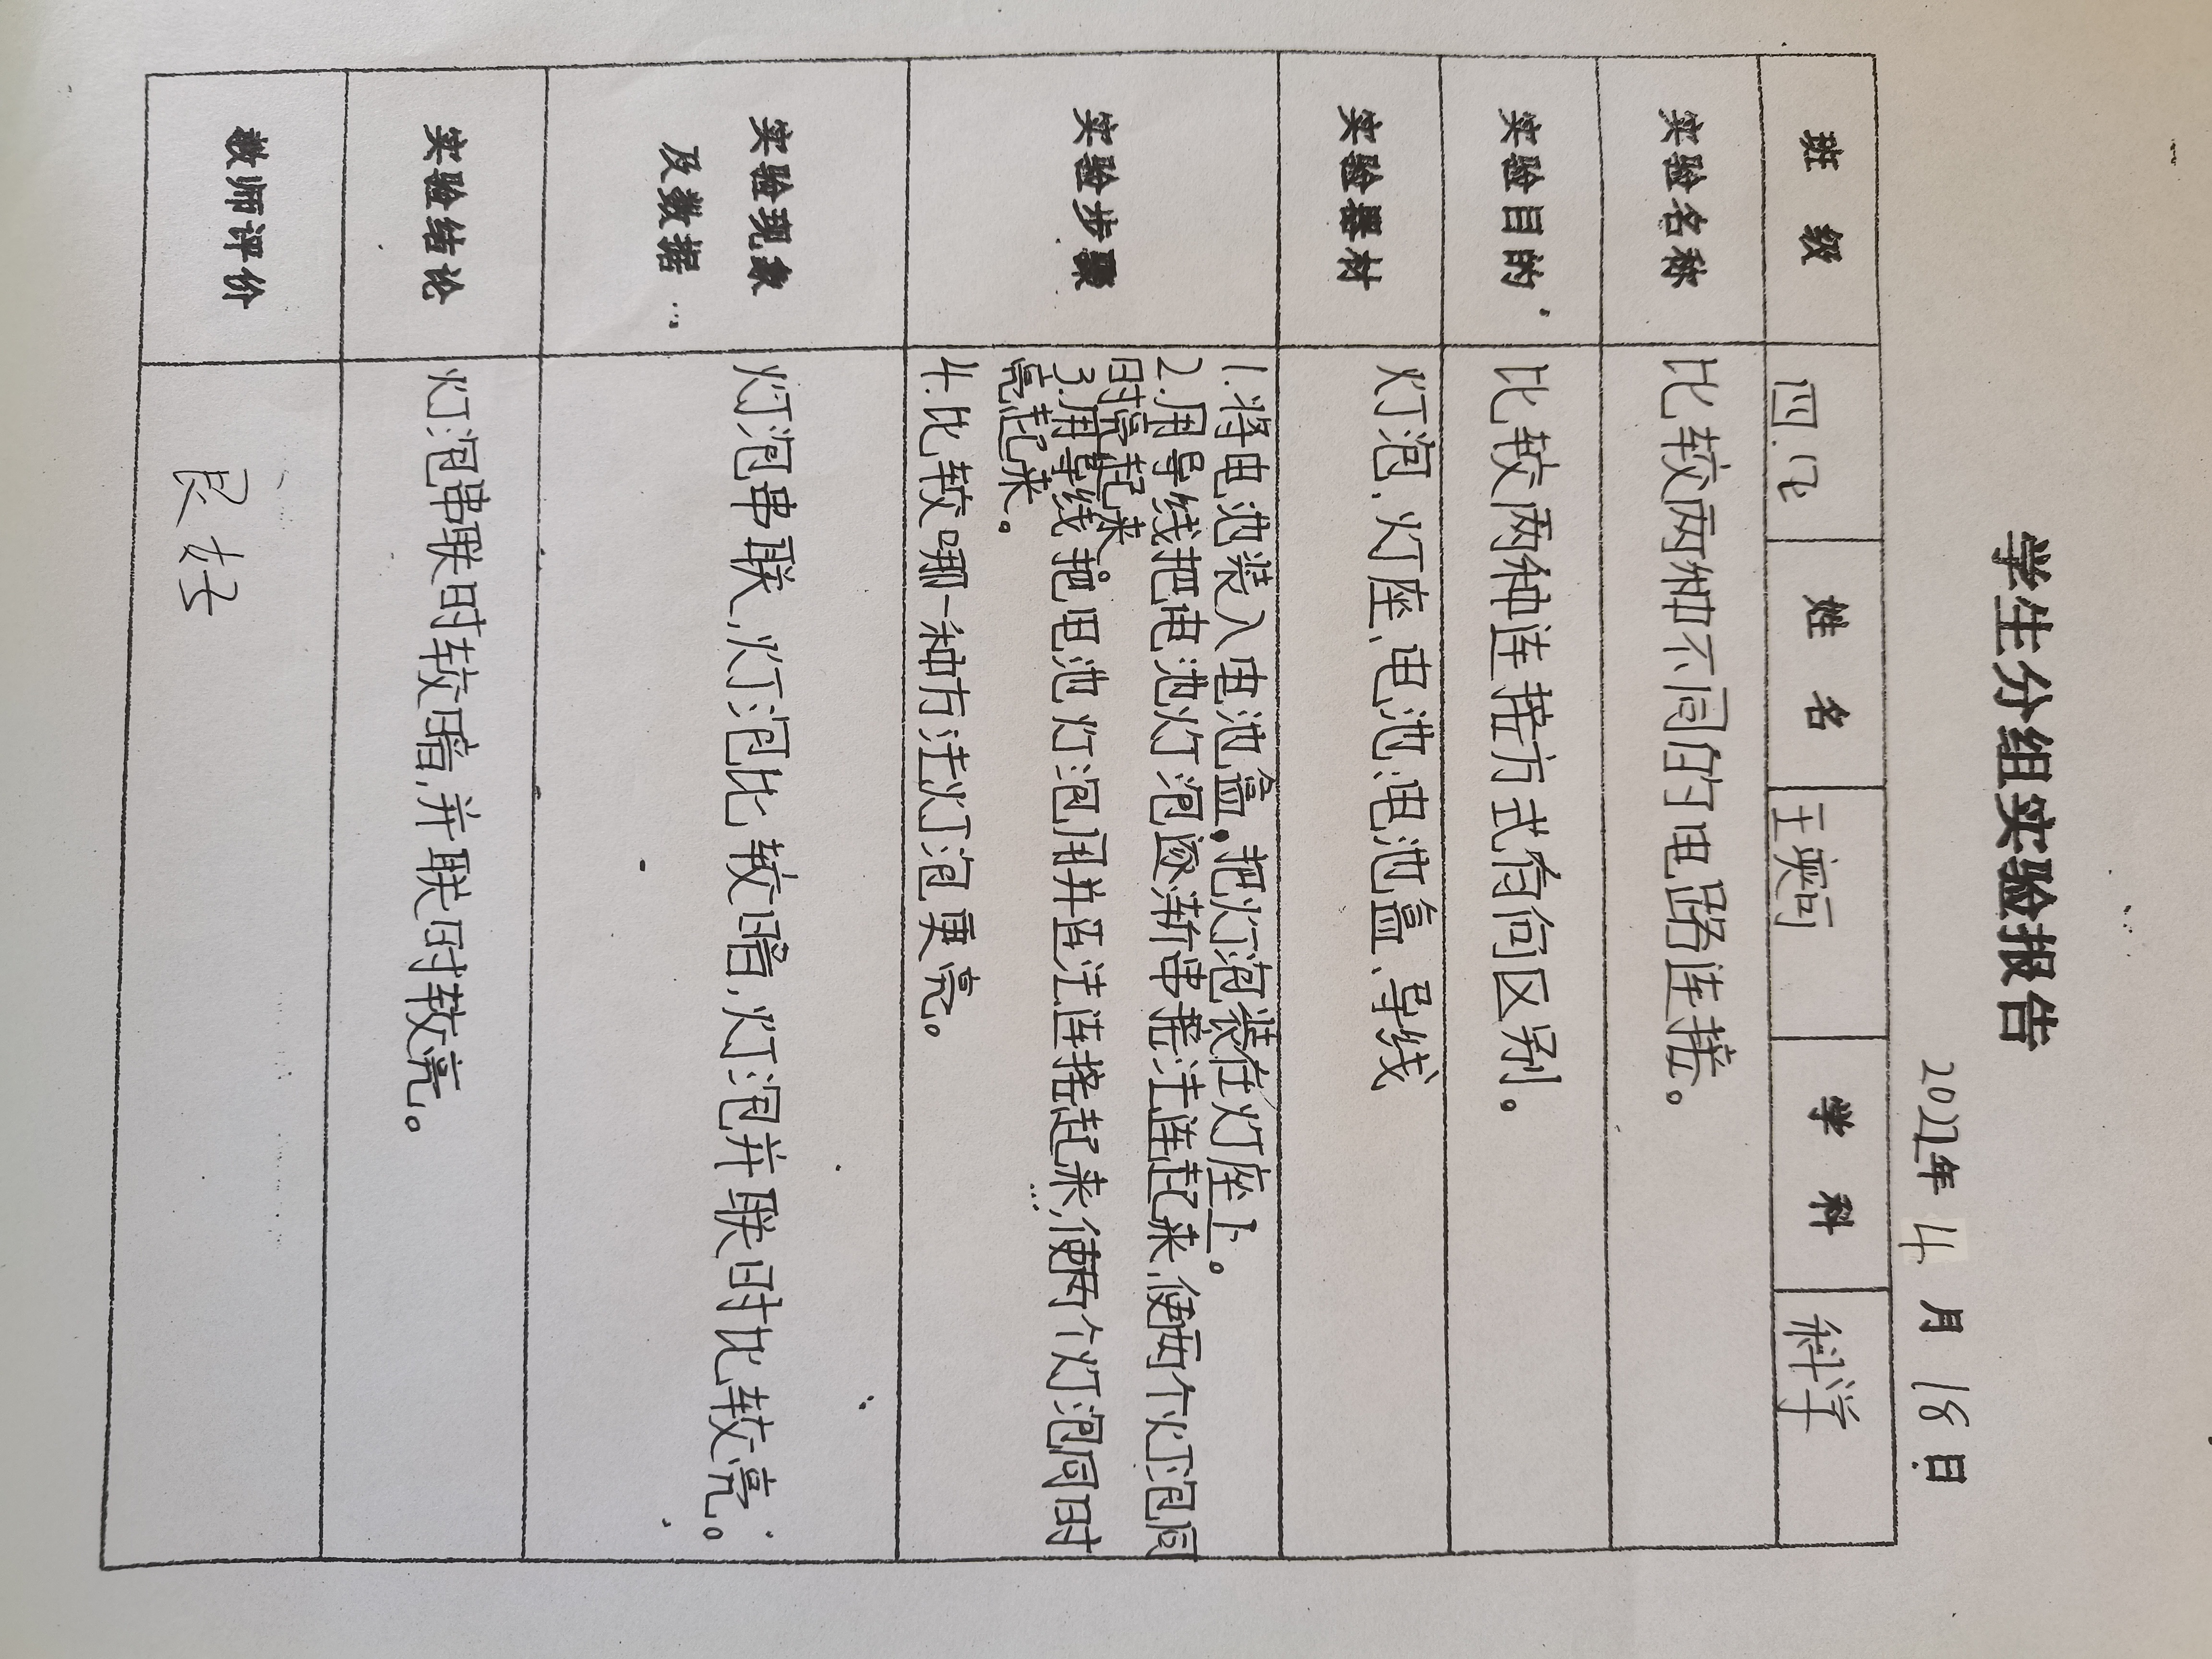 学生分组实验报告
2022年 4 月 18 日
班 级 四.12 姓 名 王奕可 学 科 科学
实验名称 比较两种不同的电路连接。
实验目的 比较两种连接方式有何区别。
实验器材 灯泡、灯座、电池、电池盒、导线
实验步骤
1.将电池装入电池盒,把灯泡装在灯座上。
2.用导线把电池灯泡逐渐串接法连起来,使两个灯泡同
时亮起来。
3.用导线把电池灯泡用并连法连接起来,使两个灯泡同时
亮起来。
4.比较哪一种方法灯泡更亮。
实验现象
及数据
灯泡串联,灯泡比较暗,灯泡并联时比较亮。
实验结论 灯泡串联时较暗,并联时较亮。
教师评价 良好